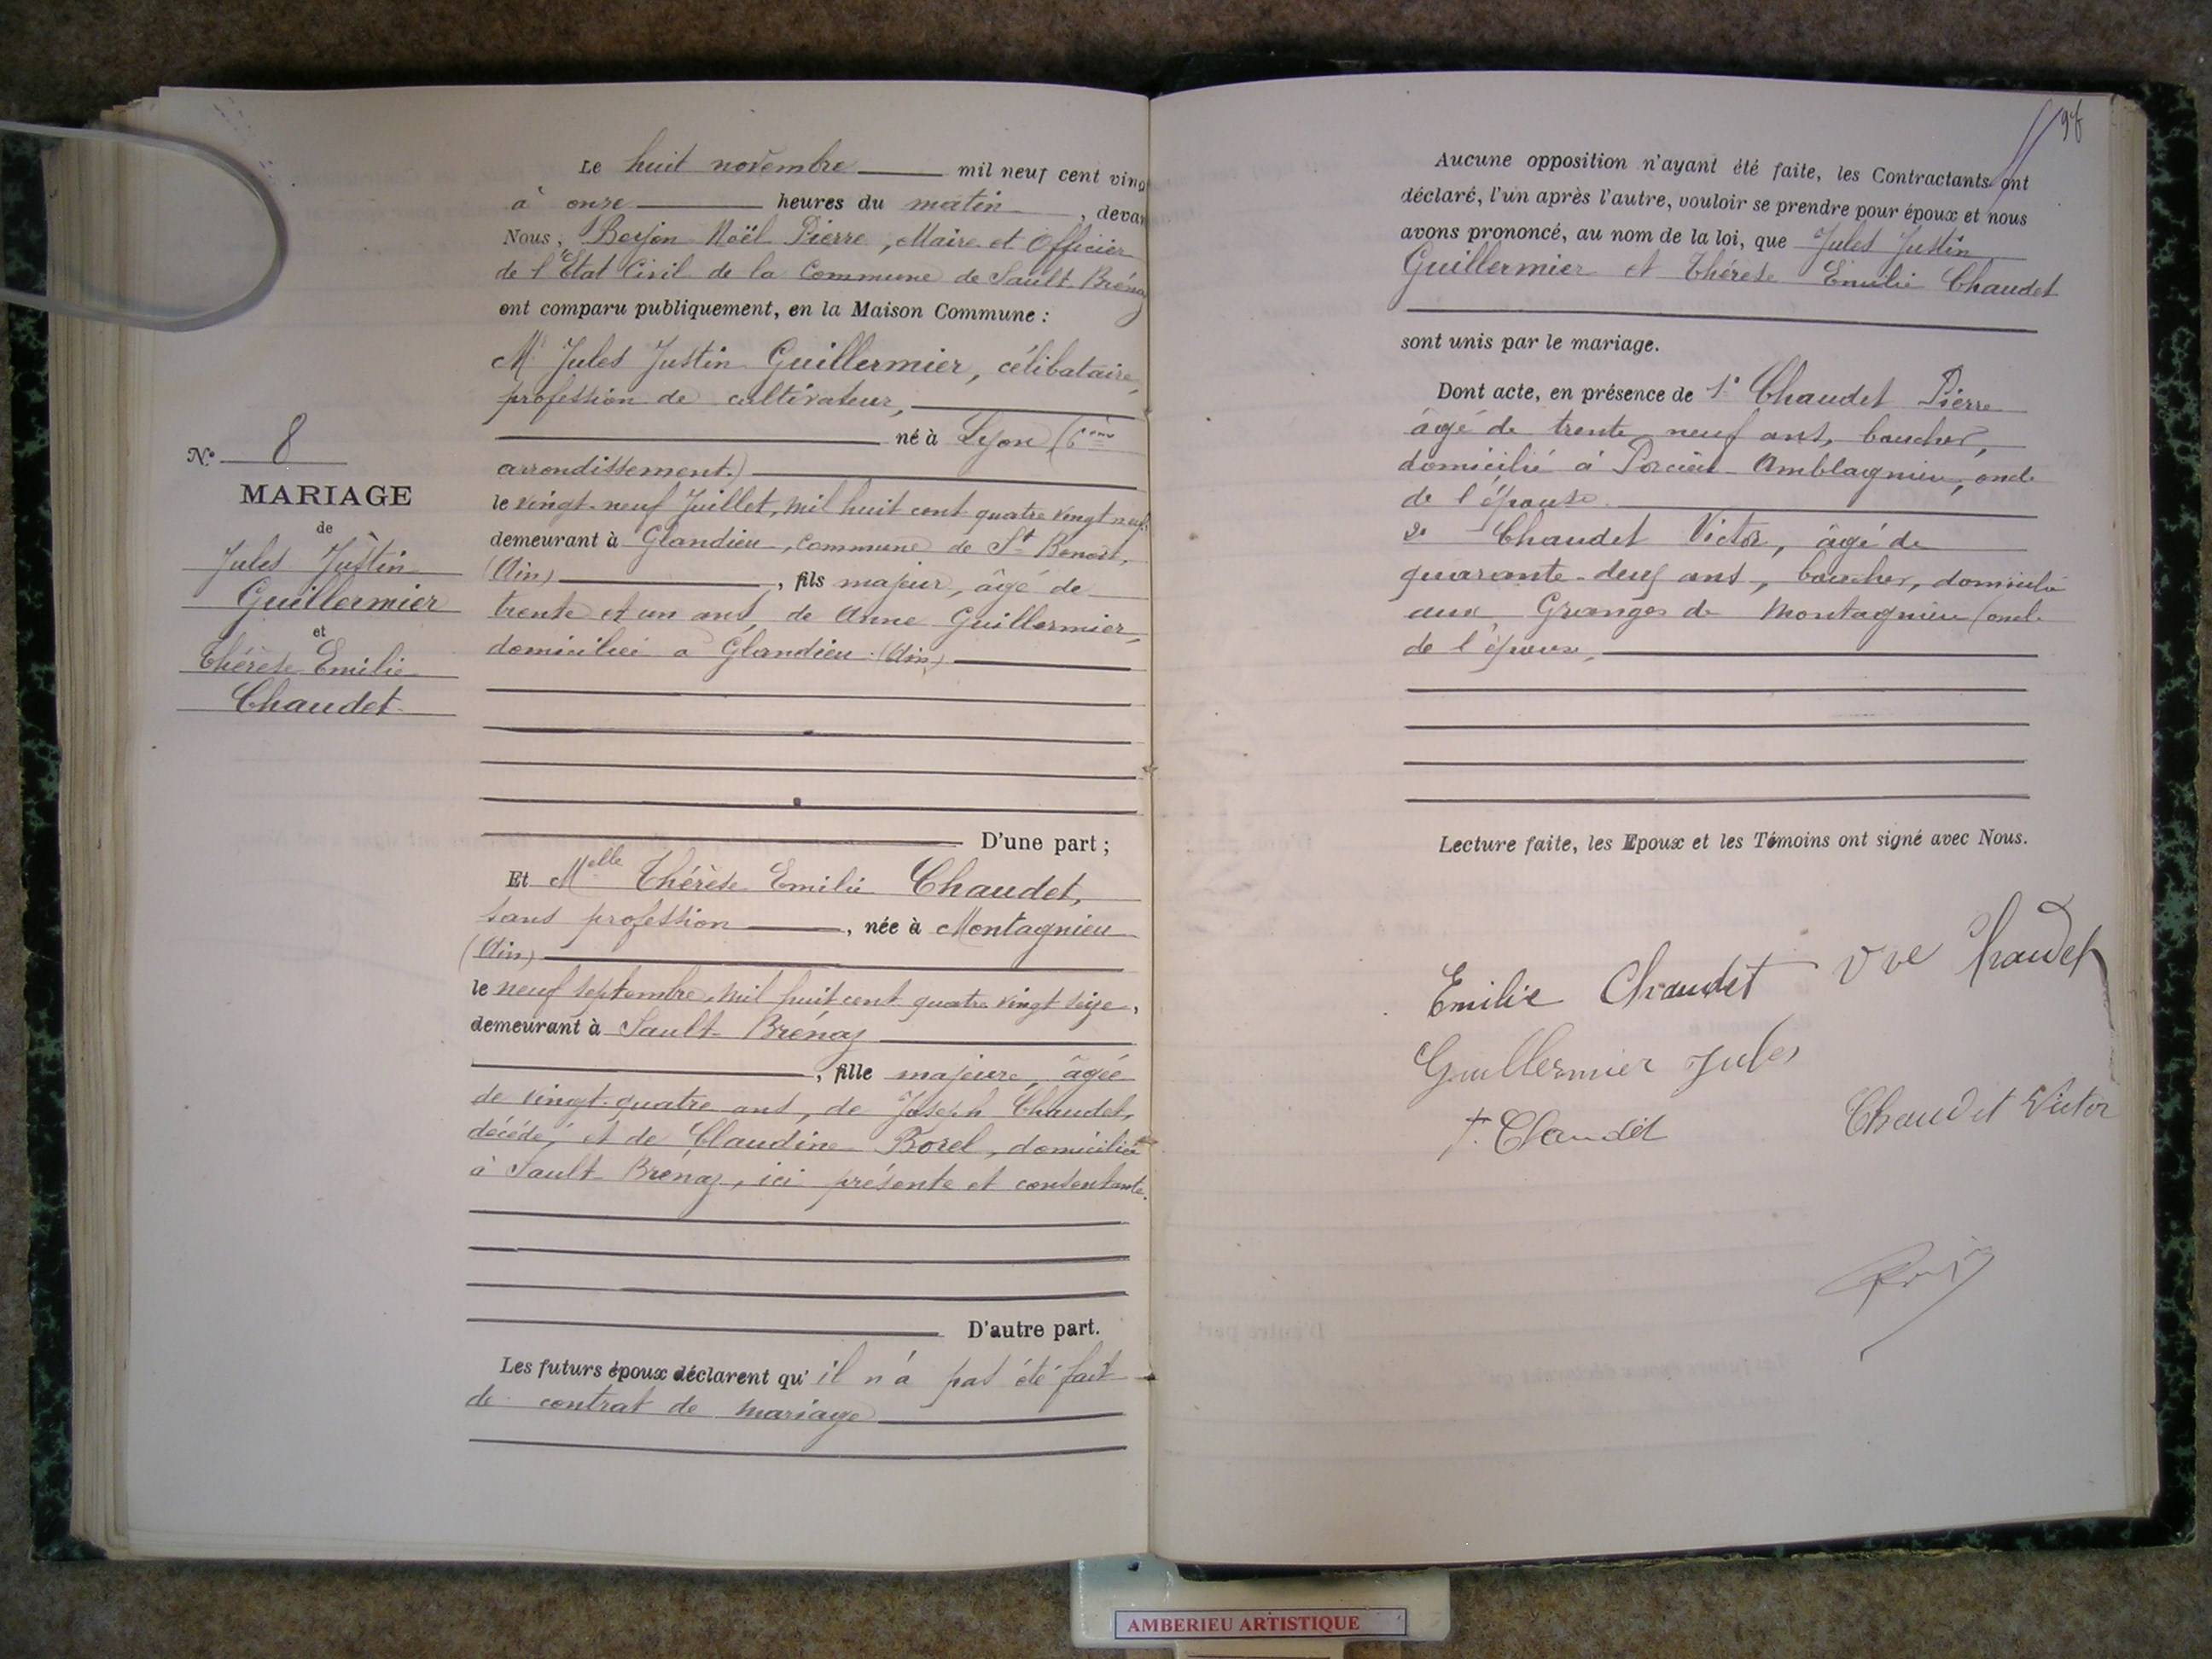 Le huit novembre mil neuf cent ving
à onze heures du matin, devan
Nous, Berjon Noël Pierre, Maire et Officier
de l'Etat Civil de la Commune de Sault-Brénaz
ont comparu publiquement, en la Maison Commune :
Mr Jules Justin Guillermier, célibataire,
profession de cultivateur,
né à Lyon (6ème
arrondissement.)
le vingt-neuf Juillet, mil huit cent quatre vingt neuf
demeurant à Glandieu, Commune de St Benoit,
(Ain), fils majeur, âgé de
trente et un ans, de Anne Guillermier,
domiciliée à Glandieu (Ain)
D'une part ;
No 8
MARIAGE
de
Jules Justin
Guillermier
et
Thérèse Emilie
Chaudet
Et Melle Thérèse Emilie Chaudet,
sans profession, née à Montagnieu
(Ain)
le neuf septembre, mil huit cent quatre vingt seize,
demeurant à Sault-Brénaz
, fille majeure, âgée
de vingt-quatre ans, de Joseph Chaudet,
décédé, et de Claudine Borel, domiciliée
à Sault-Brénaz, ici présente et consentante.
D'autre part.
Les futurs époux déclarent qu'il n'a pas été fait
de contrat de mariage
98
Aucune opposition n'ayant été faite, les Contractants ont
déclaré, l'un après l'autre, vouloir se prendre pour époux et nous
avons prononcé, au nom de la loi, que Jules Justin
Guillermier et Thérèse Emilie Chaudet
sont unis par le mariage.
Dont acte, en présence de 1° Chaudet Pierre
âgé de trente-neuf ans, boucher,
domicilié à Porcieu-Amblagnieu, oncle
de l'épouse
2° Chaudet Victor, âgé de
quarante-deux ans, boucher, domicilié
aux Granges de Montagnieu (oncle
de l'épouse,
Lecture faite, les Epoux et les Témoins ont signé avec Nous.
Emilie Chaudet Vve Chaudet
Guillermier Jules
P. Chaudet Chaudet Victor
AMBERIEU ARTISTIQUE